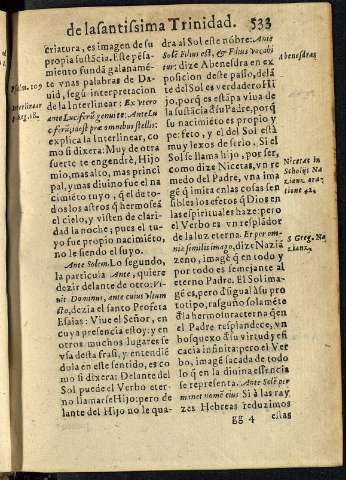 de la santissima Trinidad. 533
criatura, es imagen de su
propia sustãcia. Este pẽsa-
miento fundã galanamẽ-
te vnas palabras de Da-
uid, segũ interpretacion
de la Interlinear: Ex vtero
ante Luciferũ genui te: Ante Lu
ciferũ, id est præ omnibus stellis:
explica la Interlinear, co
mo si dixera: Muy de otra
fuerte te engendrè, Hijo
mio, mas alto, mas princi
pal, y mas diuino fue el na
cimiẽto tuyo, q̃ el de to-
dos los astros q̃ hermoseã
el cielo, y visten de clari-
dad la noche; pues el tu-
yo fue propio nacimiẽto,
no le siendo el suyo.
Ante Solem. Lo segundo,
la particula Ante, quiere
dezir delante de otro: Vi-
uit Dominus, ante cuius vltum
sto, dezia el santo Profeta
Esaias: Viue el Señor, en
cuya presencia estoy; y en
otros muchos lugares se
vsa desta frasi, y entendiẽ
dola en este sentido, es co
mo si dixera: Delante del
Sol puede el Verbo eter-
no llamarse Hijo: pero de
lante del Hijo no le qua-
Psalm. 109
Interlinear
dra al Sol este nõbre: Ante
Solẽ Filius est, & Filius vocabi
tur: dize Abenesdra en ex
posicion deste passo, delã
te del Sol es verdadero Hi
jo, porq̃ es estãpa viua de
la sustãcia d̃ su Padre, porq̃
su nacimiẽto es propio y
perfeto, y el del Sol està
muy lexos de serlo. Si el
Sol se llama hijo, por ser,
como dize Nicetas, vn re
medo del Padre, vna ima
gẽ q̃ imita en las cosas sen
sibles los efetos q̃ Dios en
las espirituales haze: pero
el Verbo es vn resplãdor
de la luz eterna. Et per om-
nia similis imago, dize Naziã
zeno, imagen en todo y
por todo es semejante al
eterno Padre. El Sol ima
gẽ es, pero d̃sigual a su pro
totipo, rasguño solamẽte
d̃ la hermosura eterna que
en el Padre resplandece, vn
bosquexo d̃ su virtud y efi
cacia infinita: pero el Ver
bo, imagẽ sacada de todo
lo q̃ en la diuina essencia
se representa. Ante Solẽ per
manet nomẽ eius Si à las ray
zes Hebreas reduzimos
gg 4 estas
Abenesdra
Nicetas in
Scholijs Na
zianz. ora-
tione 42.
S Greg. Na
zianz.